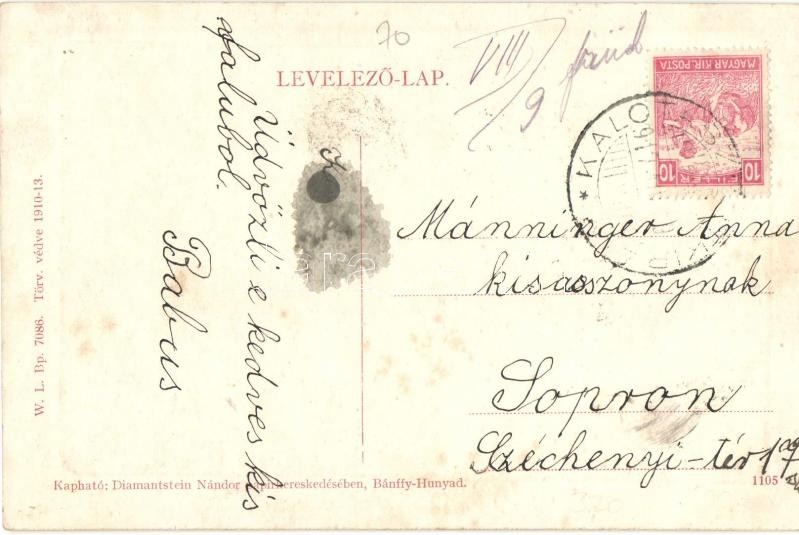 70
VIII
9
LEVELEZŐ-LAP.
MAGYAR KIR. POSTA
10 FILLÉR 10
* KALO
Üdvözli e kedves kis
falubol.
Babus
Mánninger Anna
kisasszonynak
Sopron
Széchenyi-tér 17
W. L. Bp. 7086. Törv. védve 1910-13.
Kapható: Diamantstein Nándor papirkereskedésében, Bánffy-Hunyad.
1105